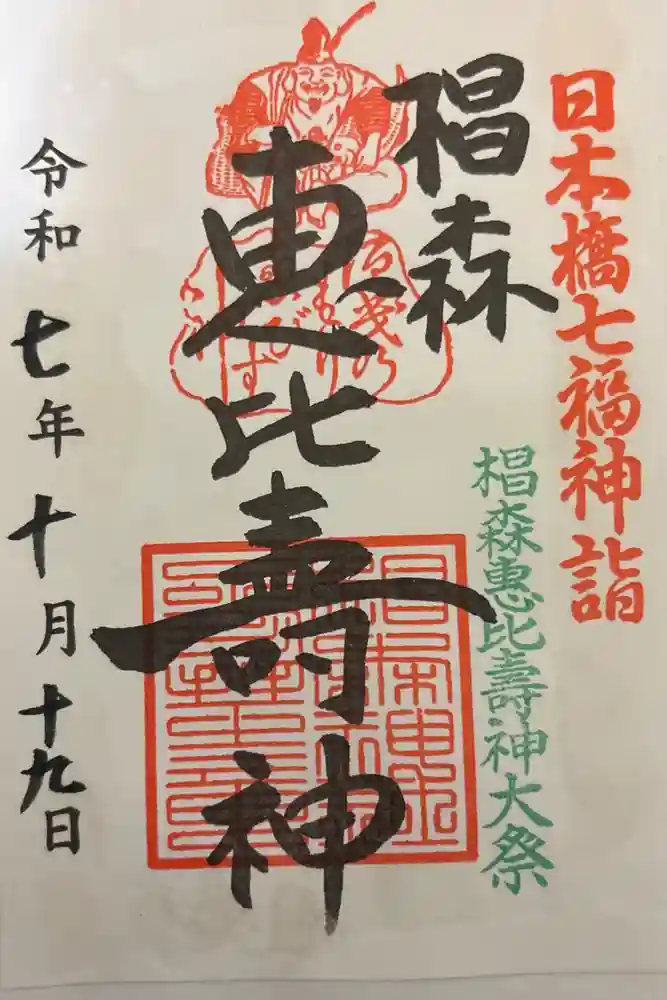 日本橋七福神詣
椙森
恵比壽神
椙森恵比壽神大祭
令和七年十月十九日